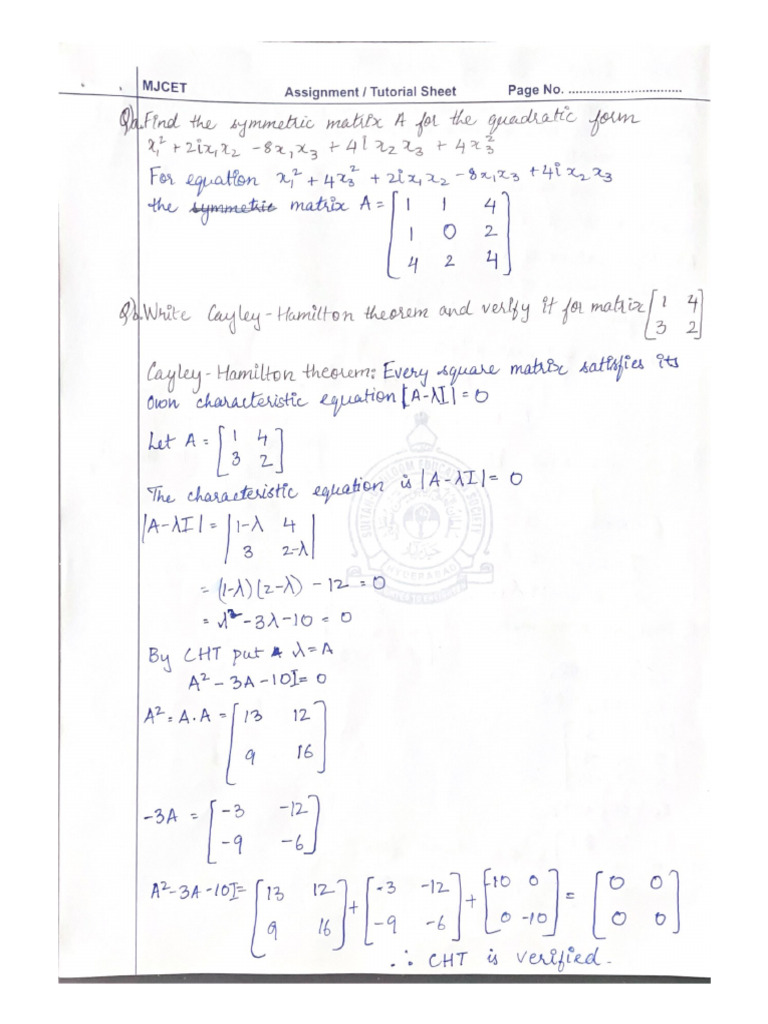 MJCET Assignment / Tutorial Sheet Page No. ................................
Qa. Find the symmetric matrix A for the quadratic form
x₁² + 2ix₁x₂ - 8x₁x₃ + 4i x₂x₃ + 4x₃²
For equation x₁² + 4x₃² + 2ix₁x₂ - 8x₁x₃ + 4i x₂x₃
the symmetric matrix A = [1 1 4
1 0 2
4 2 4]
Qb. Write Cayley-Hamilton theorem and verify it for matrix [1 4
3 2]
Cayley-Hamilton theorem: Every square matrix satisfies its
own characteristic equation |A-λI| = 0
Let A = [1 4
3 2]
The characteristic equation is |A-λI| = 0
|A-λI| = |1-λ 4
3 2-λ|
= (1-λ)(2-λ) - 12 = 0
= λ² - 3λ - 10 = 0
By CHT put λ = A
A² - 3A - 10I = 0
A² = A.A = [13 12
9 16]
-3A = [-3 -12
-9 -6]
A² - 3A - 10I = [13 12 + [-3 -12 + [-10 0 = [0 0
9 16] -9 -6] 0 -10] 0 0]
∴ CHT is verified.